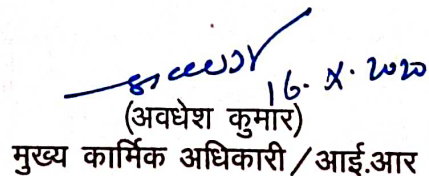 16. X. 2020
(अवधेश कुमार)
मुख्य कार्मिक अधिकारी/आई.आर